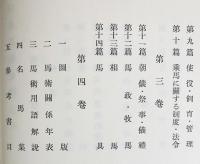 第九篇 使役・飼育・管理
第十篇 乗馬に關する制度・法令
第三卷
第十一篇 朝儀・祭事・儀禮
第十二篇 馬政・牧馬
第十三篇 相馬
第十四篇 馬具
第四卷
一 圖版
二 馬術關係年表
三 馬術用語解說
四 名馬集
五 參考書目